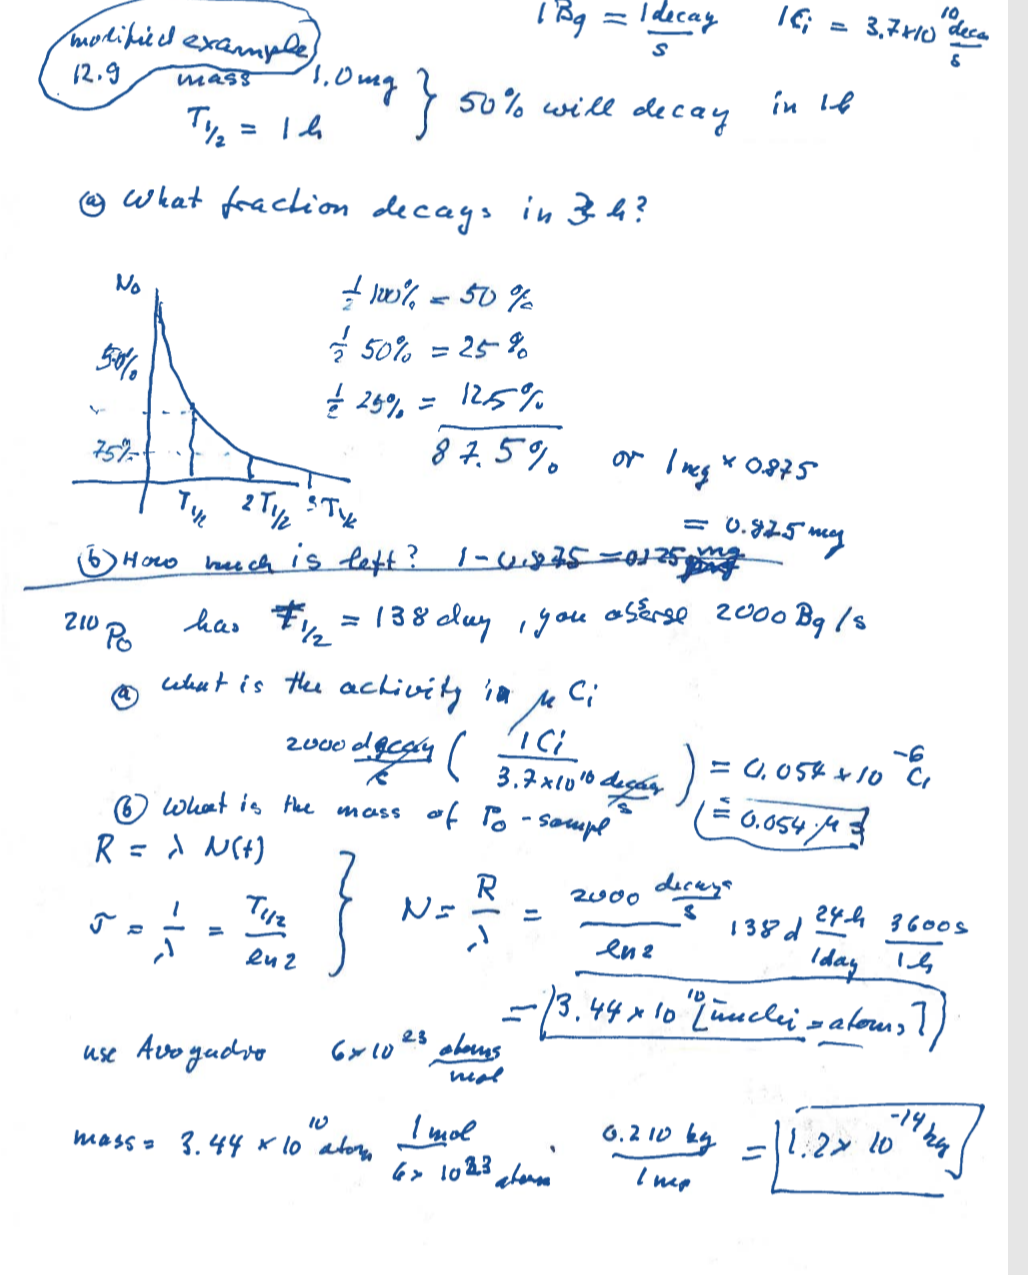 1 Bq = 1 decay/s 1 Ci = 3.7×10^10 deca/s
modified example
12.9 mass 1.0 mg } 50% will decay in 1h
T1/2 = 1 h
ⓐ What fraction decays in 3 h?
No
1/2 100% = 50 %
50% 1/2 50% = 25 %
1/2 25% = 12.5 %
75% 87.5% or 1 mg × 0.875
T1/2 2T1/2 3T1/2
= 0.875 mg
ⓑ How much is left? 1 - 0.875 = 0.125 mg
210 Po has T1/2 = 138 day, you obserse 2000 Bq/s
ⓐ what is the activity in μ Ci
2000 decay/s ( 1 Ci / 3.7×10^10 decay/s ) = 0.054 × 10^-6 Ci
= 0.054 μ
ⓑ What is the mass of Po - sampl
R = λ N(t)
τ = 1/λ = T1/2 / ln2 } N = R/λ = 2000 decays/s / ln2 138 d 24 h/1day 3600s/1 h
= 3.44 × 10^10 [nuclei = atoms]
use Avogadro 6×10^23 atoms/mol
mass = 3.44 × 10^10 atom 1 mol / 6×10^23 atom · 0.210 kg / 1 mo = 1.2× 10^-14 kg